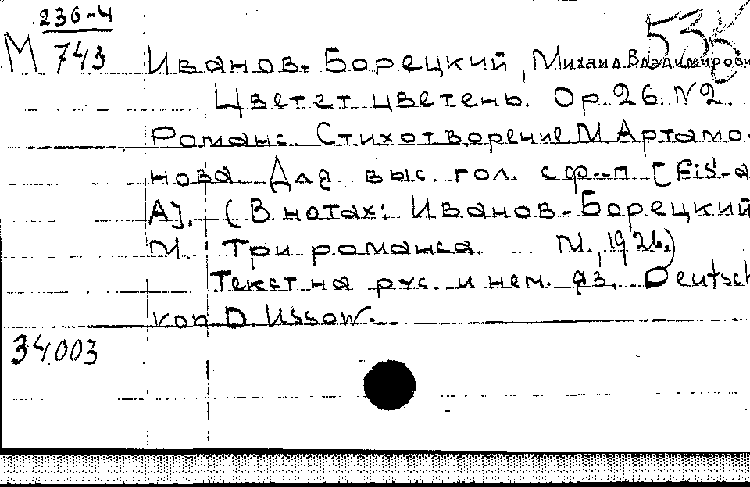 236-4
М 743
Иванов-Борецкий, Михаил Владимирови
Цветет цветень. Ор. 26 N2
Романс. Стихотворение М Артамо-
нова. Для выс. гол. с ф-п [Fis-a
A]. (В нотах: Иванов-Борецкий
М. Три романса. М., 1926.)
Текст на рус. и нем. яз. Deutsch
von D. Ussow.
34.003